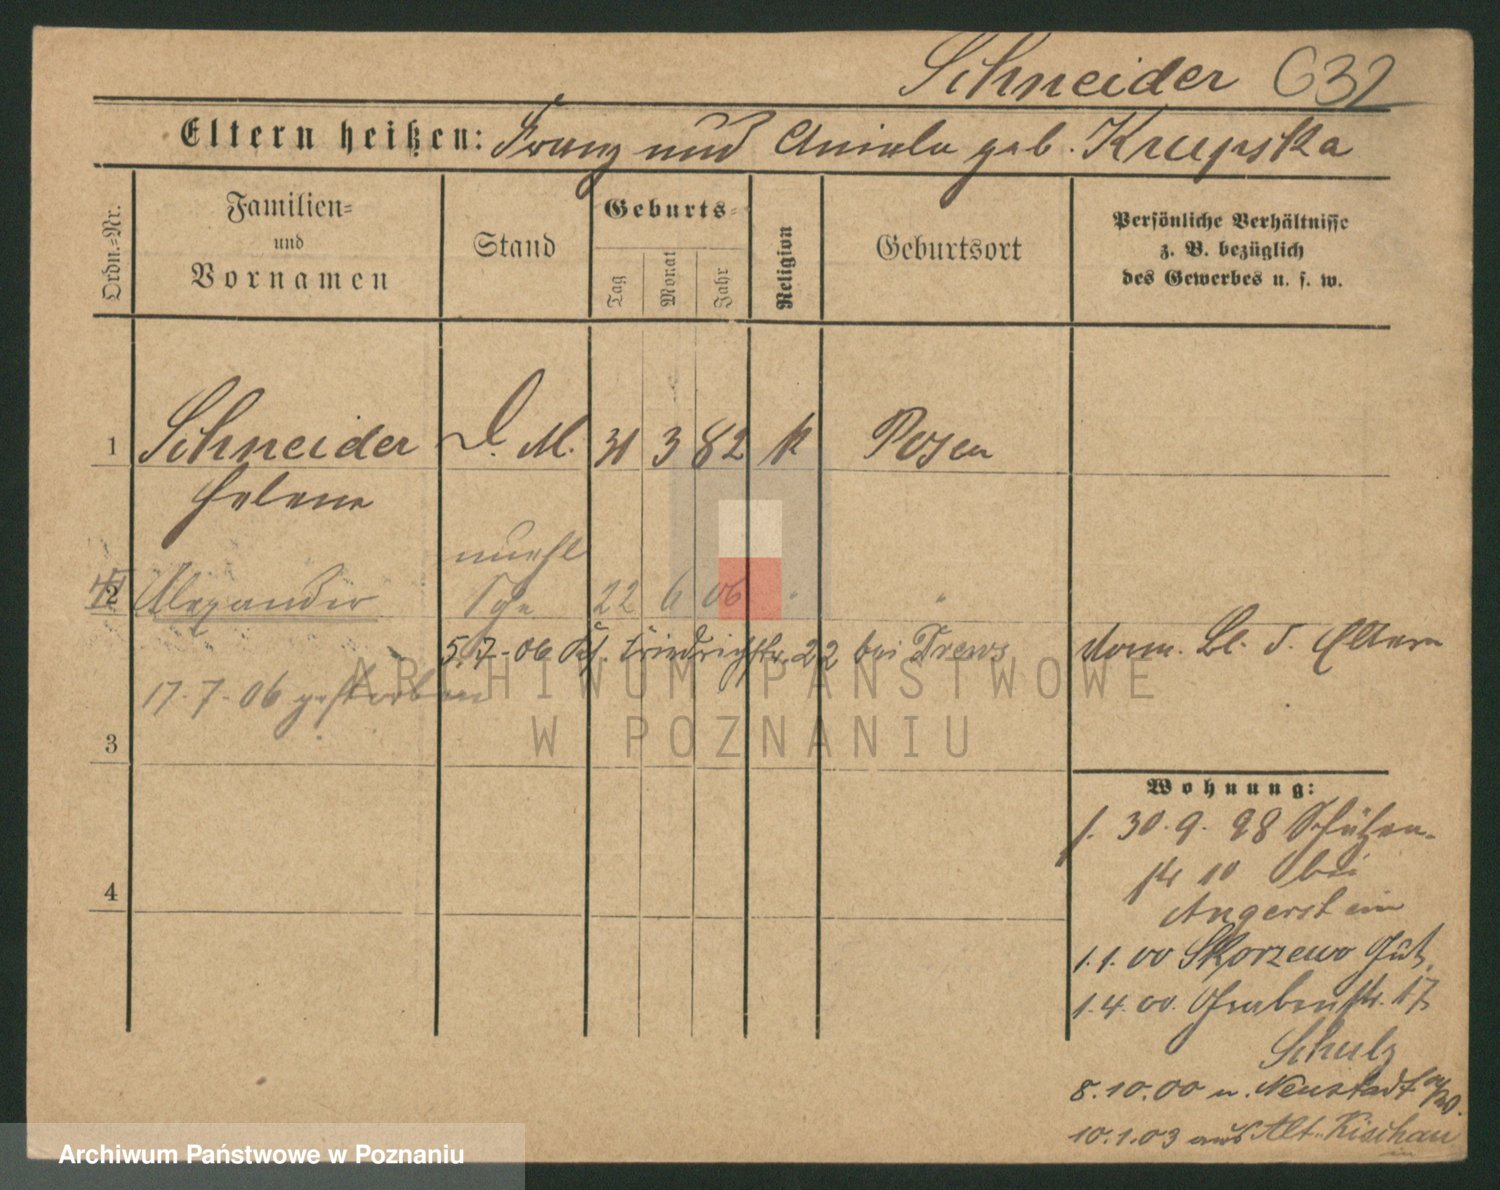 Schneider 632
Eltern heißen: Franz und Aniela geb. Krupska
Ordn.-Nr.
Familien-
und
Vornamen
Stand
Geburts-
Tag
Monat
Jahr
Religion
Geburtsort
Persönliche Verhältnisse
z. B. bezüglich
des Gewerbes u. s. w.
1 Schneider D. M. 31 3 82 k Posen
Helene
unehl
2 Alexander 22 6 06 "
5.7.06 Friedrichstr. 22 bei Drews
17.7.06 gestorben
3
4
Wohnung:
f. 30.9.98 Schützen-
str 10 bei
Angerstein
1.1.00 Skorzewo Gut.
1.4.00. Grabenstr. 17
Schulz
8.10.00 n. Neustadt a/W.
10.1.03 aus Alt-Kischau
ARCHIWUM PAŃSTWOWE
W POZNANIU
Archiwum Państwowe w Poznaniu